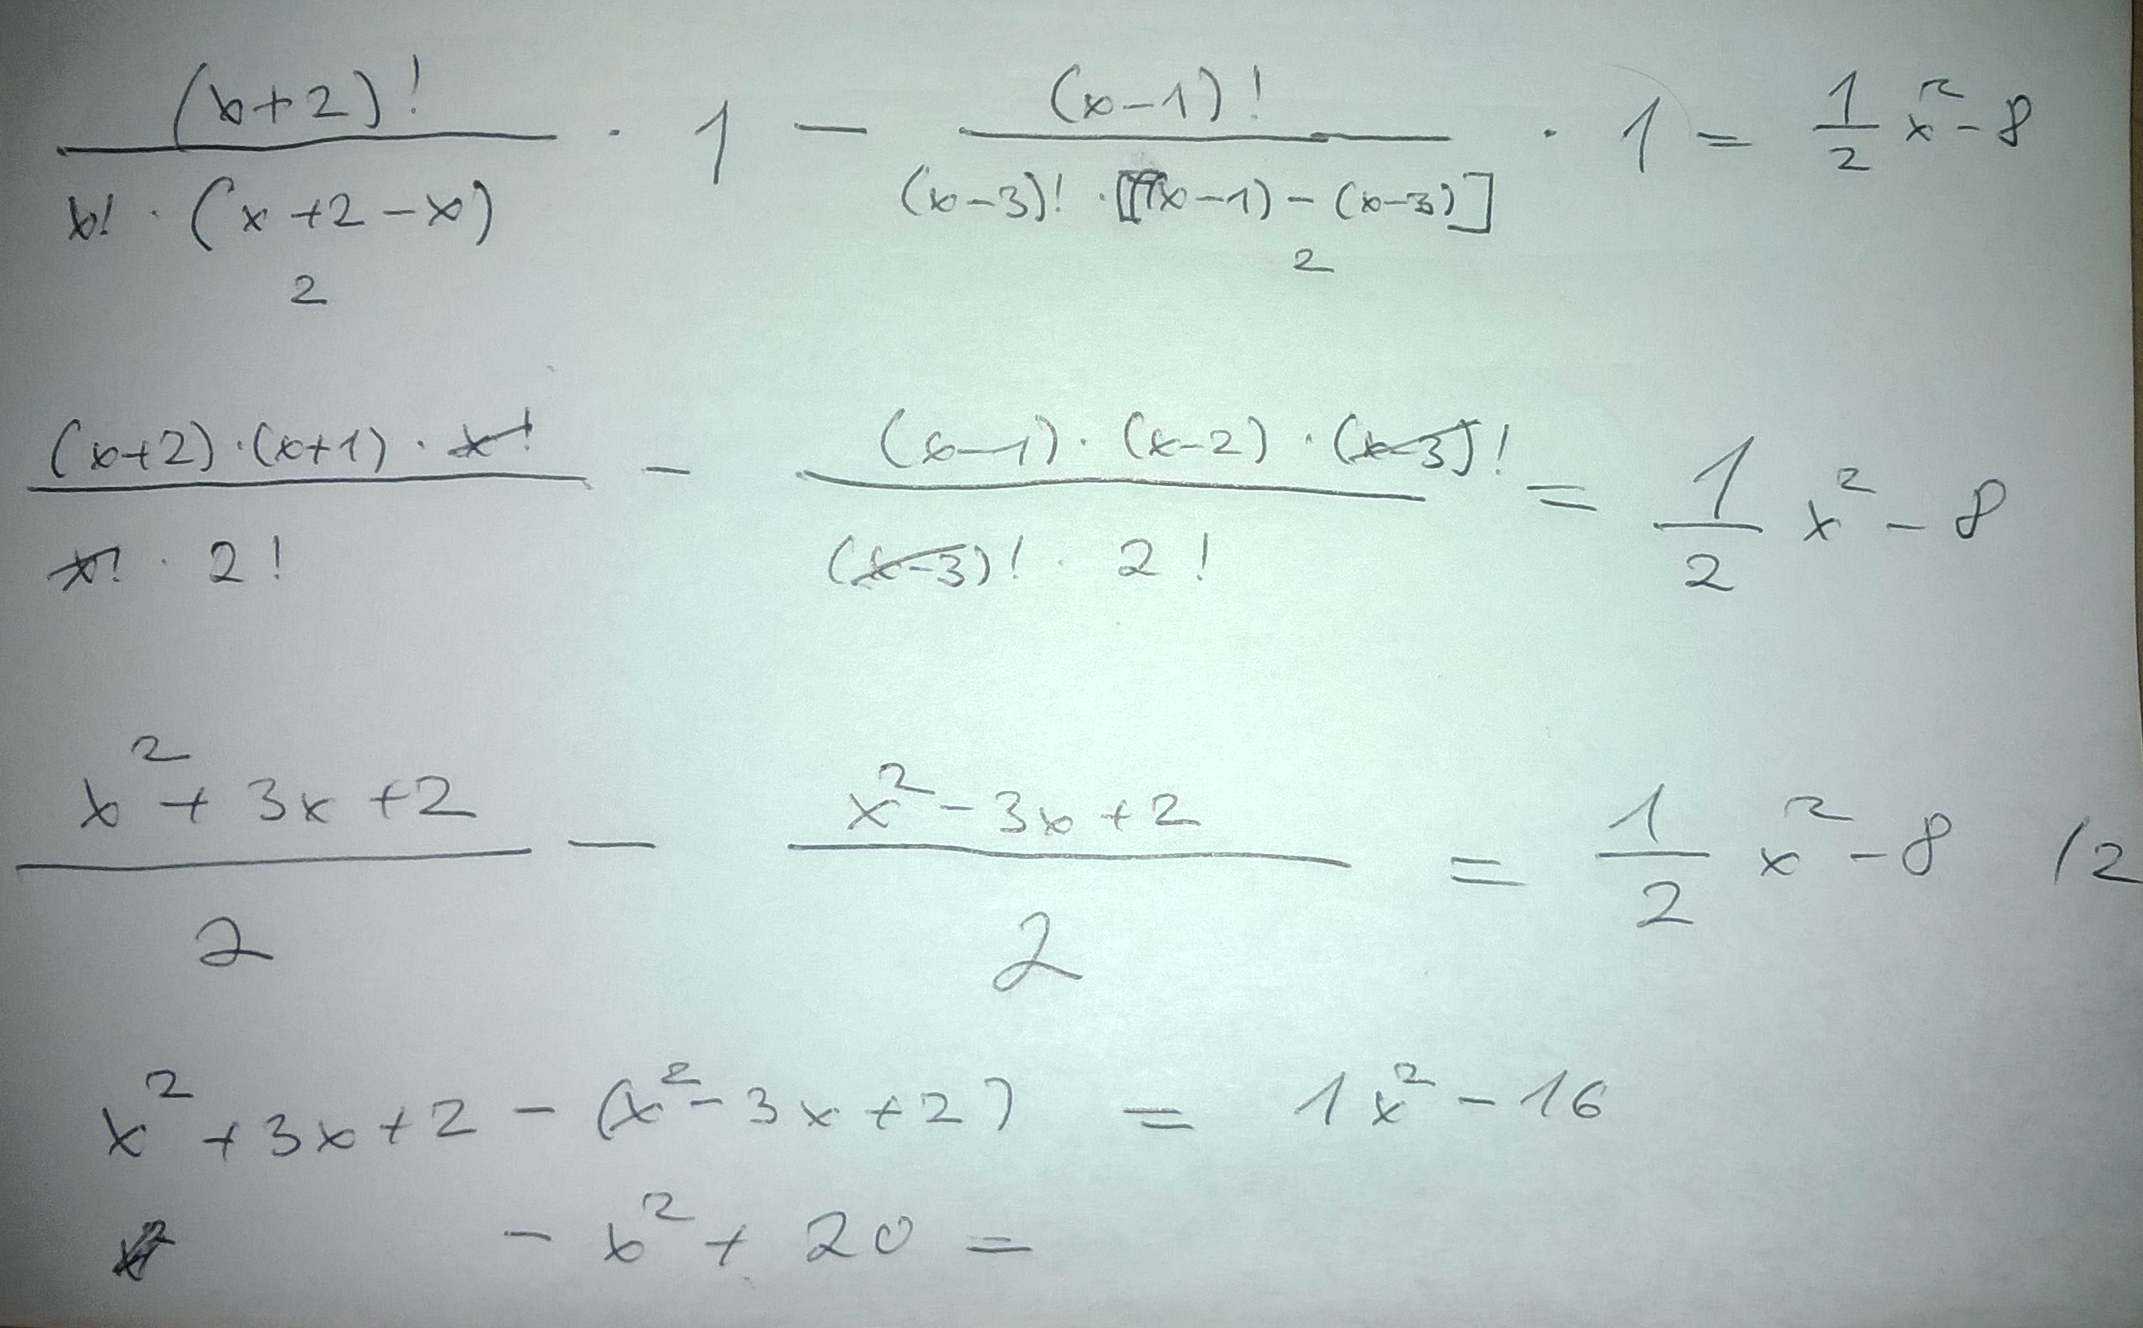 (x+2)! / x! · (x+2-x) · 1 - (x-1)! / (x-3)! · [(x-1)-(x-3)] · 1 = 1/2 x² - 8
2 2
(x+2)·(x+1)·x! / x! · 2! - (x-1)·(x-2)·(x-3)! / (x-3)! · 2! = 1/2 x² - 8
x² + 3x + 2 / 2 - x² - 3x + 2 / 2 = 1/2 x² - 8 /2
x² + 3x + 2 - (x² - 3x + 2) = 1x² - 16
- x² + 20 =